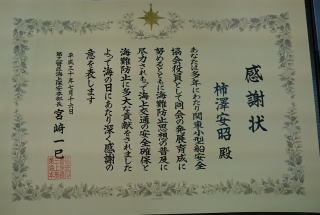 感謝状
柿澤安昭 殿
あなたは多年にわたり関東小型船安全
協会役員として同会の発展育成に
努めるとともに海難防止思想の普及に
尽力されもって海上交通の安全確保と
海難防止に多大な貢献をされました
よって海の日にあたり深く感謝の
意を表します
平成三十年七月十六日
第三管区海上保安本部長 宮﨑一巳